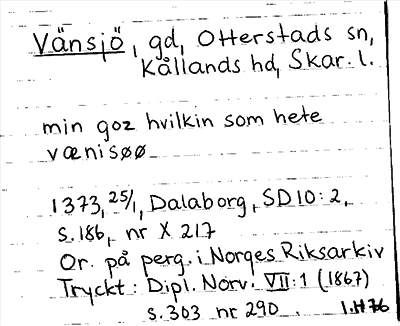 Vänsjö, gd, Otterstads sn,
Kållands hd, Skar. l.
min goz hvilkin som hete
vænisøø
1373, 25/1, Dalaborg, SD10:2,
s.186, nr X 217
Or. på perg. i Norges Riksarkiv
Tryckt: Dipl. Norv. VII:1 (1867)
s.303 nr 290. I.H 76